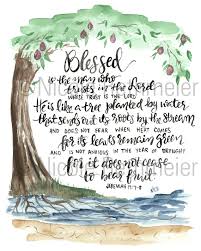 Blessed
is the man who
trusts in the Lord
WHOSE TRUST IS THE LORD
He is like a tree planted by water
that sends out its roots by the stream
AND DOES NOT FEAR WHEN HEAT COMES
for its leaves remain green
AND IS NOT ANXIOUS IN THE YEAR OF DROUGHT
for it does not cease
to bear fruit
JEREMIAH 17:7-8